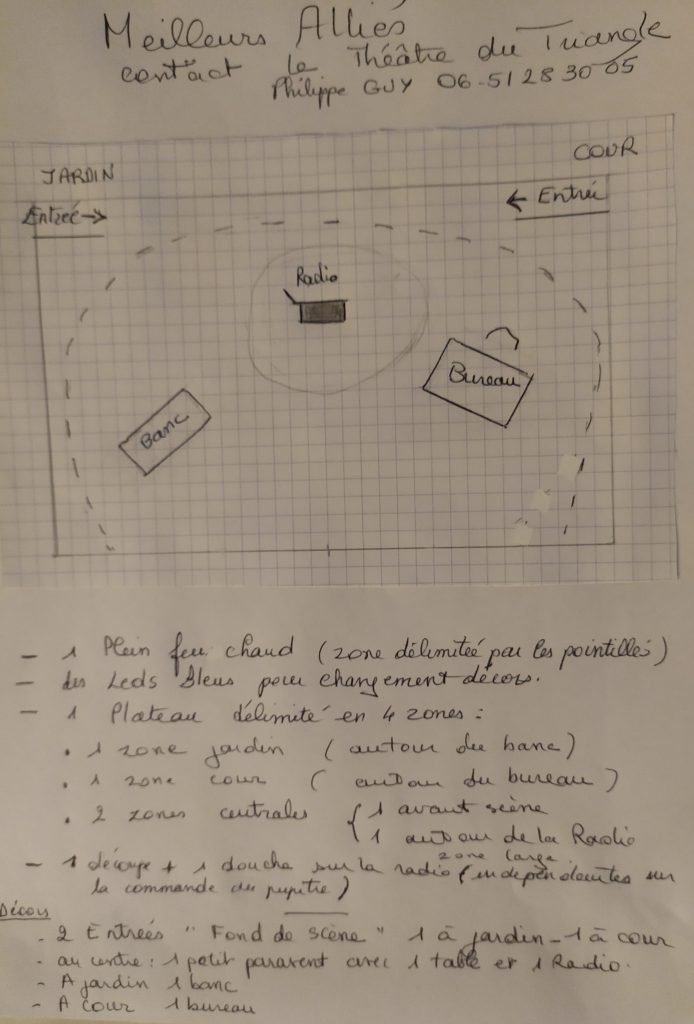 Meilleurs Alliés
contact le Théâtre du Triangle
Philippe GUY 06.51 28 30 05
COUR
JARDIN
Entrée →
← Entrée
Radio
Bureau
Banc
- 1 Plein feu chaud (zone délimiteé par les pointillés)
- des Leds Bleus pour changement décors.
- 1 Plateau délimité en 4 zones :
. 1 zone jardin (autour du banc)
. 1 zone cour (autour du bureau)
. 2 zones centrales { 1 avant scène
1 autour de la Radio
zone large
- 1 découpe + 1 douche sur la radio (indépendantes sur
la commande du pupitre)
Décors
- 2 Entreés "Fond de scène" 1 à jardin - 1 à cour
- au centre : 1 petit paravent avec 1 table et 1 Radio.
- A jardin 1 banc
- A cour 1 bureau